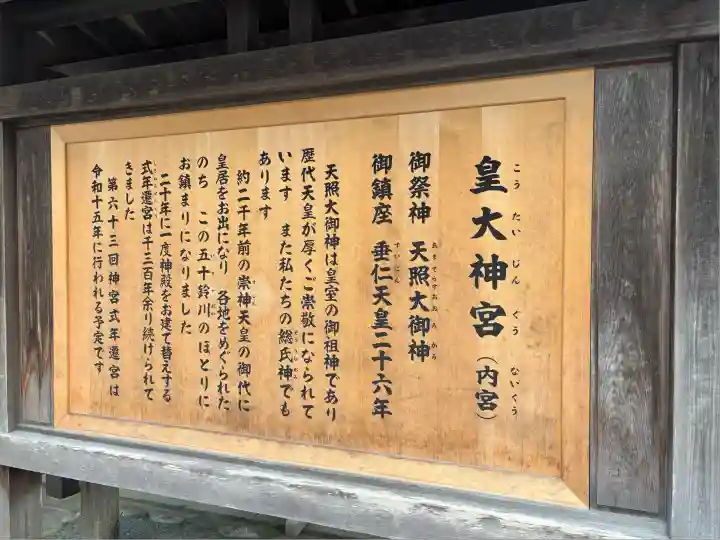 皇大神宮（内宮）
こう たい じん ぐう ないくう
御祭神 天照大御神
あまてらすおおみかみ
御鎮座 垂仁天皇二十六年
すいにん
天照大御神は皇室の御祖神であり
歴代天皇が厚くご崇敬になられて
います また私たちの総氏神でも
そううじがみ
あります
約二千年前の崇神天皇の御代に
すじん
皇居をお出になり 各地をめぐられた
のち この五十鈴川のほとりに
お鎮まりになりました
二十年に一度神殿をお建て替えする
式年遷宮は千三百年余り続けられて
きました
第六十三回神宮式年遷宮は
令和十五年に行われる予定です